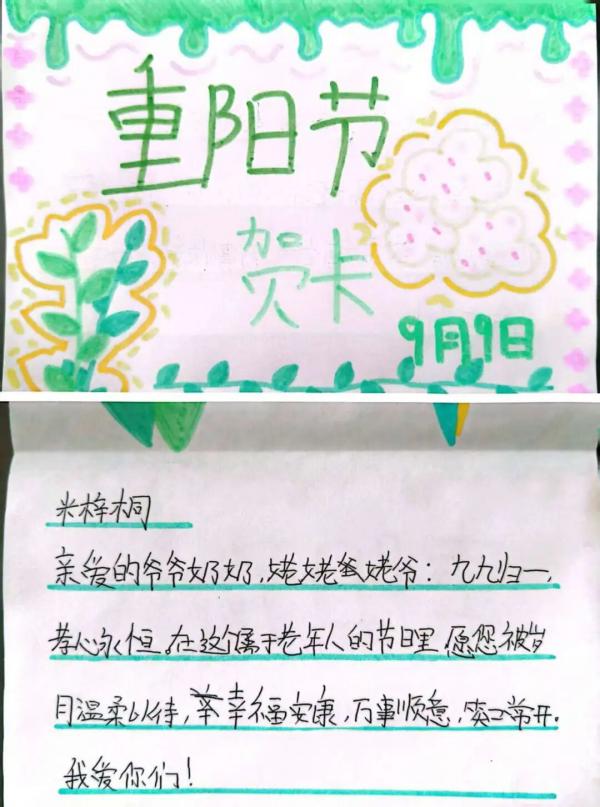 重阳节
贺卡
9月9日
米梓桐
亲爱的爷爷奶奶,姥姥姥爷:九九归一,
孝心永恒。在这个属于老年人的节日里 愿您被岁
月温柔以待,幸福安康,万事顺意,笑口常开。
我爱你们!